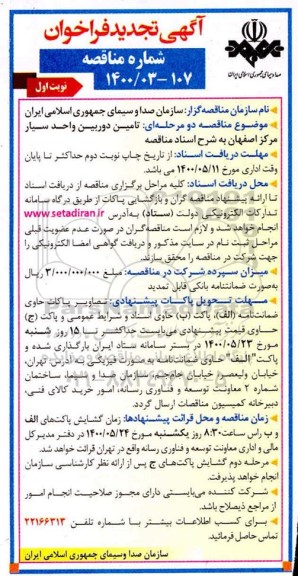 آگهی تجدید فراخوان
شماره مناقصه
۱۴۰۰/۰۳-۱۰۷
نوبت اول
صدا و سیمای جمهوری اسلامی ایران
نام سازمان مناقصه‌گزار: سازمان صدا و سیمای جمهوری اسلامی ایران
موضوع مناقصه دو مرحله‌ای: تامین دوربین واحد سیار
مرکز اصفهان به شرح اسناد مناقصه
مهلت دریافت اسناد: از تاریخ چاپ نوبت دوم حداکثر تا پایان
وقت اداری مورخ ۱۴۰۰/۰۵/۱۱ می باشد.
محل دریافت اسناد: کلیه مراحل برگزاری مناقصه از دریافت اسناد
تا ارائه پیشنهاد مناقصه گران و بازگشایی پاکات از طریق درگاه سامانه
تدارکات الکترونیکی دولت (ستاد) به آدرس www.setadiran.ir
انجام خواهد شد و لازم است مناقصه‌گران در صورت عدم عضویت قبلی
مراحل ثبت نام در سایت مذکور و دریافت گواهی امضا الکترونیکی را
جهت شرکت در مناقصه را محقق سازند.
میزان سپرده شرکت در مناقصه: مبلغ ۳/۰۰۰/۰۰۰/۰۰۰ ریال
به‌صورت ضمانتنامه بانکی قابل تمدید
مهلت تحویل پاکات پیشنهادی: تصاویر پاکات حاوی
ضمانتنامه (الف)، پاکت (ب) حاوی اسناد و شرایط عمومی و پاکت (ج)
حاوی قیمت پیشنهادی می‌بایست حداکثر تا ۱۵ روز شنبه
مورخ ۱۴۰۰/۰۵/۲۳ در بستر سامانه ستاد ایران بارگذاری شده و
پاکت "الف" حاوی ضمانتنامه به صورت فیزیکی به آدرس تهران،
خیابان ولیعصر، خیابان جام‌جم، سازمان صدا و سیما، ساختمان
شماره ۲ معاونت توسعه و فناوری رسانه، امور خرید کالای فنی،
دبیرخانه کمیسیون مناقصات ارسال گردد.
زمان مناقصه و محل قرائت پیشنهادها: زمان گشایش پاکت‌های الف
و ب راس ساعت ۸:۳۰ روز یکشنبه مورخ ۱۴۰۰/۰۵/۲۴ در دفتر مدیرکل
مالی و اداری معاونت توسعه و فناوری رسانه واقع در تهران قرائت خواهد شد.
مرحله دوم گشایش پاکت‌های ج پس از ارائه نظر کارشناسی سازمان
انجام خواهد پذیرفت.
شرکت کننده می‌بایستی دارای مجوز صلاحیت انجام امور
از مراجع ذیصلاح باشد.
برای کسب اطلاعات بیشتر با شماره تلفن ۲۲۱۶۶۳۱۳
تماس حاصل فرمائید.
سازمان صدا و سیمای جمهوری اسلامی ایران